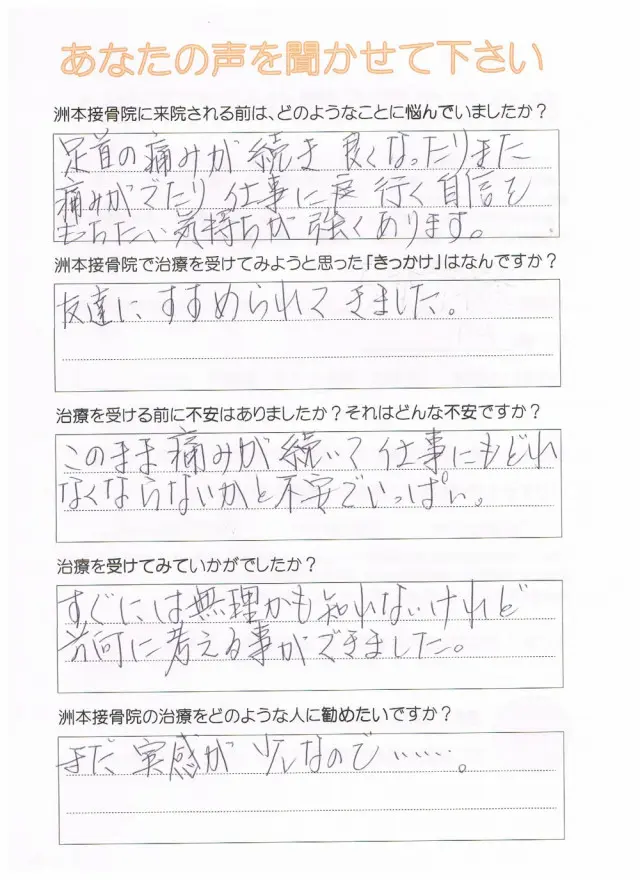 あなたの声を聞かせて下さい
洲本接骨院に来院される前は、どのようなことに悩んでいましたか？
足首の痛みが続き良くなったりまた
痛みがでたり仕事に戻行く自信を
もちたい気持ちが強くあります。
洲本接骨院で治療を受けてみようと思った「きっかけ」はなんですか？
友達にすすめられてきました。
治療を受ける前に不安はありましたか？それはどんな不安ですか？
このまま痛みが続いて仕事にもどれ
なくならないかと不安でいっぱい。
治療を受けてみていかがでしたか？
すぐには無理かも知れないけれど
に考える事ができました。
洲本接骨院の治療をどのような人に勧めたいですか？
まだ実感が少しなので……。